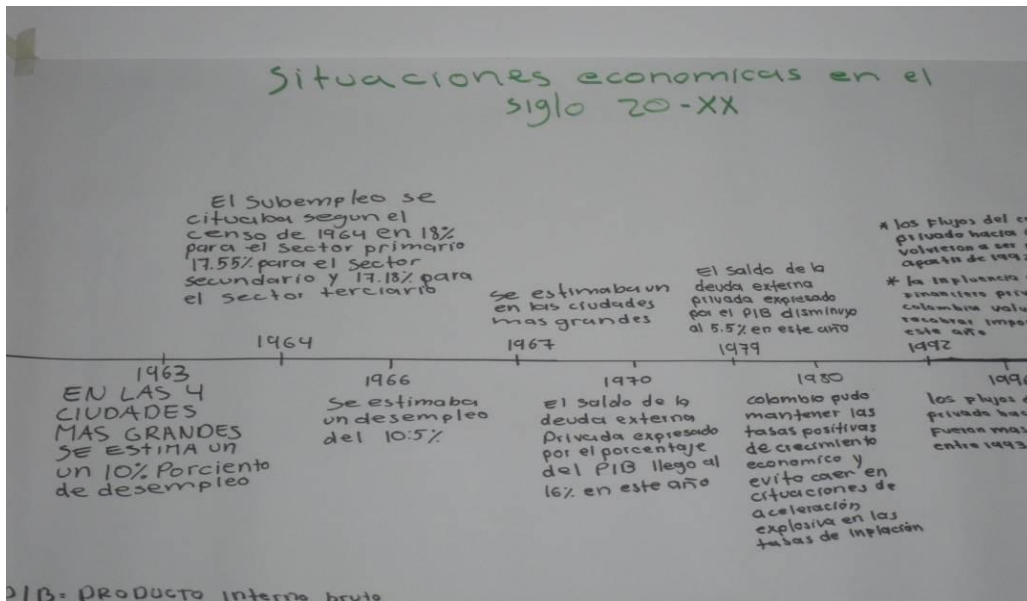 Situaciones economicas en el
siglo 20-XX
El Subempleo se
cituaba segun el
censo de 1964 en 18%
para el sector primario
17.55% para el sector
secundario y 17.18% para
el sector terciario
1964
se estimaba un
en las ciudades
mas grandes
1967
El saldo de la
deuda externa
privada expresado
por el PIB disminuyo
al 5.5% en este año
1979
* los flujos del
privado hacia
volvieron a ser
apartir de 1992
* la influencia
financiero
colombia
recobrar
este año
1992
1963
EN LAS 4
CIUDADES
MAS GRANDES
SE ESTIMA UN
un 10% Porciento
de desempleo
1966
Se estimaba
un desempleo
del 10:5%
1970
El saldo de la
deuda externa
Privada expresado
por el porcentaje
del PIB llego al
16% en este año
1980
colombia pudo
mantener las
tasas positivas
de crecimiento
economico y
evito caer en
cituaciones de
aceleración
explosiva en las
tasas de inflación
los flujos
privado
fueron mas
entre 1993
PIB: PRODUCTO interno bruto